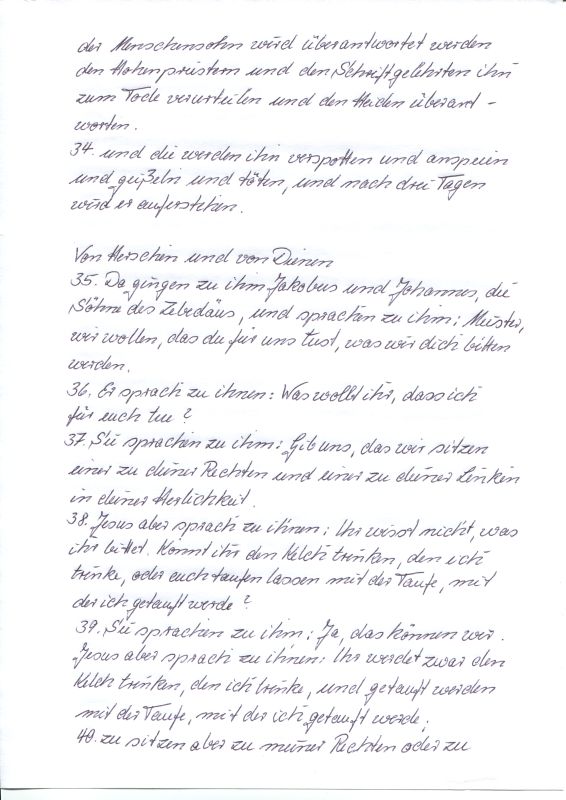 der Menschensohn wird überantwortet werden
den Hohenpristern und den Schriftgelehrten ihn
zum Tode verurteilen und den Heiden überant-
worten.
34. und die werden ihn verspotten und anspein
und geißeln und töten, und nach drei Tagen
wird er auferstehen.
Von Herschen und von Dienen
35. Da gingen zu ihm Jakobus und Johannes, die
Söhne des Zebedäus, und sprachen zu ihm: Meister,
wir wollen, das du für uns tust, was wir dich bitten
werden.
36. Er sprach zu ihnen: Was wollt ihr, dass ich
für euch tue?
37. Sie sprachen zu ihm: Gib uns, das wir sitzen
einer zu deiner Rechten und einer zu deiner Linken
in deiner Herlichkeit.
38. Jesus aber sprach zu ihnen: Ihr wisst nicht, was
ihr bittet. Könnt ihr den Kelch trinken, den ich
trinke, oder euch taufen lassen mit der Taufe, mit
der ich getauft werde?
39. Sie sprachen zu ihm: Ja, das können wir.
Jesus aber sprach zu ihnen: Ihr werdet zwar den
Kelch trinken, den ich trinke, und getauft werden
mit der Taufe, mit der ich getauft werde;
40. zu sitzen aber zu meiner Rechten oder zu